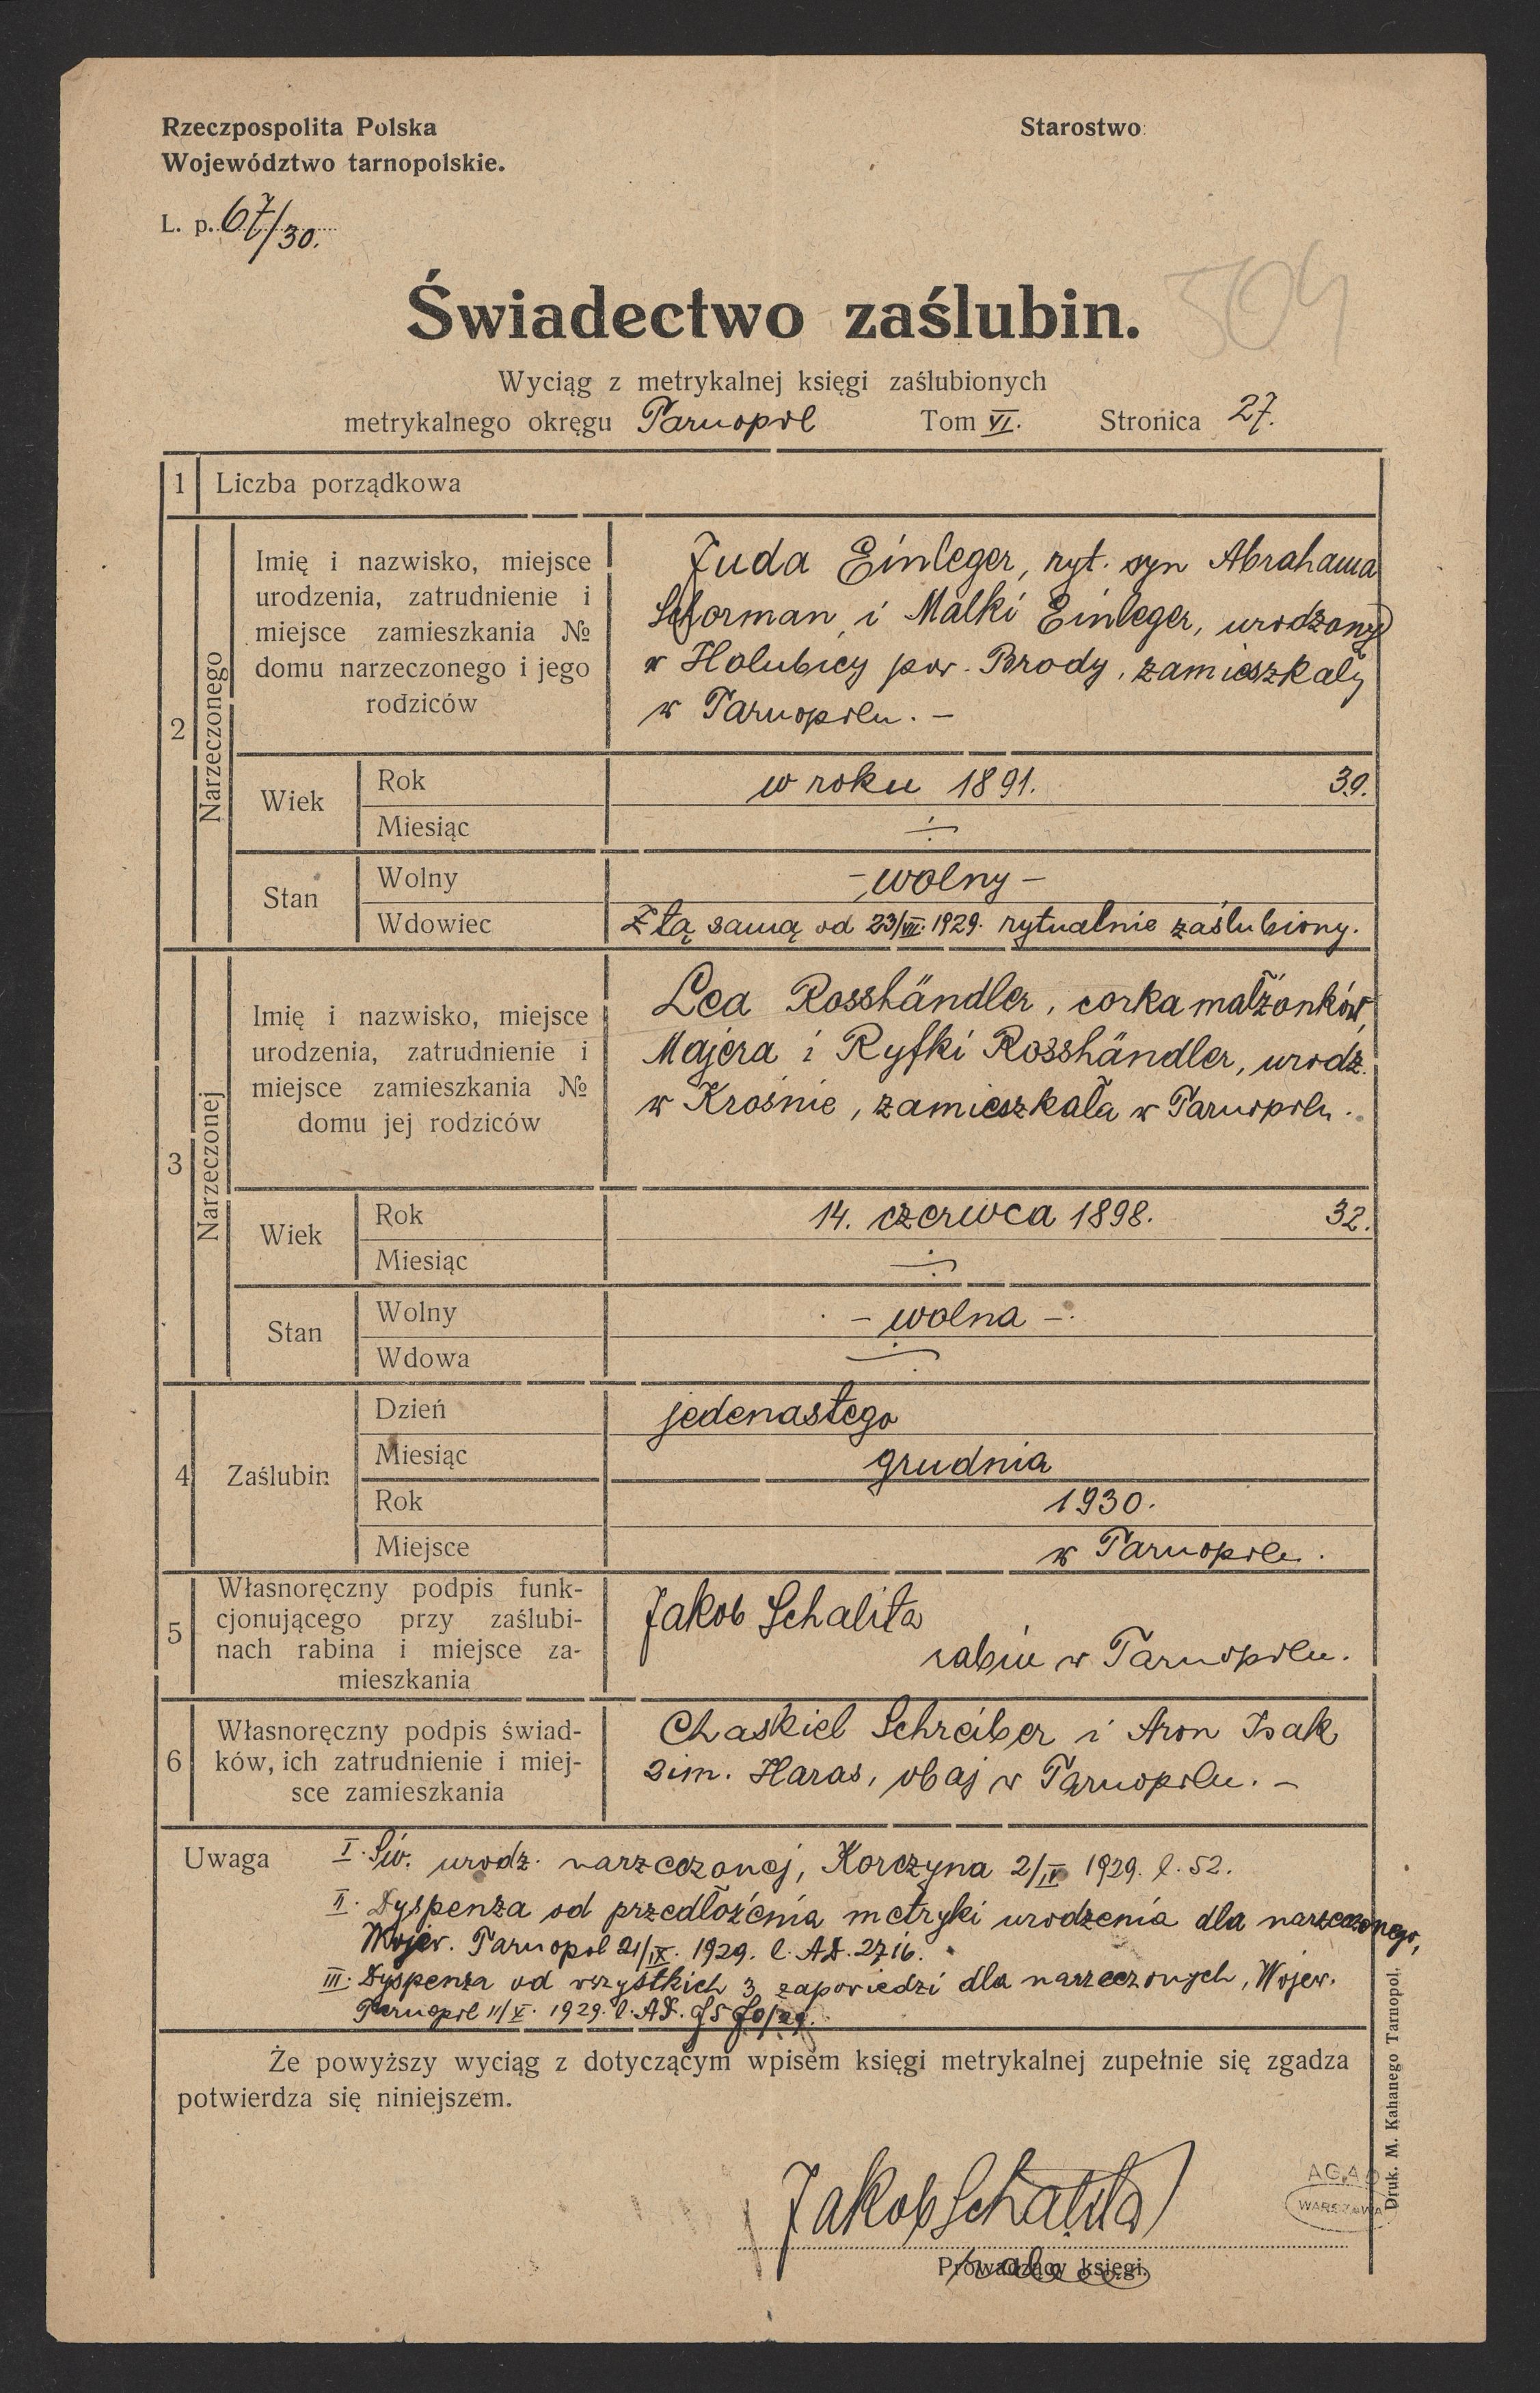 Rzeczpospolita Polska
Starostwo
Województwo tarnopolskie.
L. p. 67/30.
504
Świadectwo zaślubin.
Wyciąg z metrykalnej księgi zaślubionych
metrykalnego okręgu Tarnopol Tom VI. Stronica 27.
1 Liczba porządkowa
2 Narzeczonego
Imię i nazwisko, miejsce
urodzenia, zatrudnienie i
miejsce zamieszkania №
domu narzeczonego i jego
rodziców
Juda Einleger, ryt. syn Abrahama
Schorman i Małki Einleger, urodzony
w Hołubicy pow. Brody, zamieszkały
w Tarnopolu. –
Wiek
Rok w roku 1891. 39.
Miesiąc
Stan
Wolny – wolny –
Wdowiec Z tą samą od 23/VII. 1929. rytualnie zaślubiony.
3 Narzeczonej
Imię i nazwisko, miejsce
urodzenia, zatrudnienie i
miejsce zamieszkania №
domu jej rodziców
Lea Rosshändler, corka małżonków
Majera i Ryfki Rosshändler, urodz.
w Krośnie, zamieszkała w Tarnopolu.
Wiek
Rok 14. czerwca 1898. 32.
Miesiąc
Stan
Wolny – wolna –
Wdowa
4 Zaślubin
Dzień jedenastego
Miesiąc grudnia
Rok 1930.
Miejsce w Tarnopolu.
5
Własnoręczny podpis funk-
cjonującego przy zaślubi-
nach rabina i miejsce za-
mieszkania
Jakob Schalita
rabin w Tarnopolu.
6
Własnoręczny podpis świad-
ków, ich zatrudnienie i miej-
sce zamieszkania
Chaskiel Schreiber i Aron Isak
2 im. Haras, obaj w Tarnopolu. –
Uwaga I. Św. urodz. narzeczonej, Korczyna 2/IV 1929. l. 52.
II. Dyspenza od przedłożenia metryki urodzenia dla narzeczonego,
Wojew. Tarnopol 21/IX. 1929. l. AD. 2716.
III. Dyspenza od wszystkich 3 zapowiedzi dla narzeczonych, Wojew.
Tarnopol 11/X. 1929. l. AD.
Że powyższy wyciąg z dotyczącym wpisem księgi metrykalnej zupełnie się zgadza
potwierdza się niniejszem.
Jakob Schalita
Prowadzący księgi.
A.G.A.D.
WARSZAWA
Druk. M. Kahanego Tarnopol.